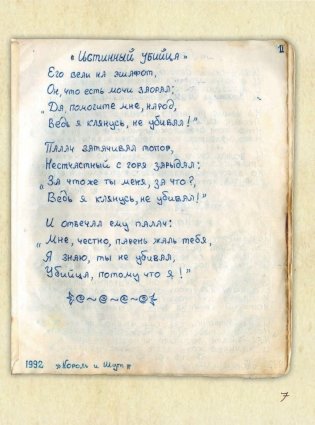 II
„Истинный убийца"
Его вели на эшафот,
Он, что есть мочи заорал:
„Да, помогите мне, народ,
Ведь я клянусь, не убивал!"
Палач затачивал топор,
Несчастный с горя зарыдал:
„За что же ты меня, за что?,
Ведь я клянусь, не убивал!"
И отвечал ему палач:
„Мне, честно, парень жаль тебя,
Я знаю, ты не убивал,
Убийца, потому что я!"
1992 „Король и Шут"
7